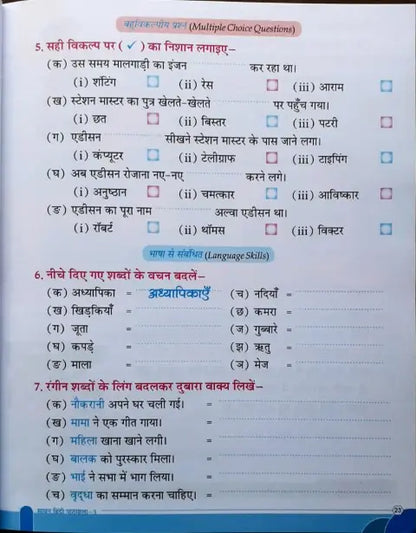 बहुविकल्पीय प्रश्न (Multiple Choice Questions)
5. सही विकल्प पर ( ✓ ) का निशान लगाइए–
(क) उस समय मालगाड़ी का इंजन ............ कर रहा था।
(i) शंटिंग (ii) रेस (iii) आराम
(ख) स्टेशन मास्टर का पुत्र खेलते-खेलते ............ पर पहुँच गया।
(i) छत (ii) बिस्तर (iii) पटरी
(ग) एडीसन ............ सीखने स्टेशन मास्टर के पास जाने लगा।
(i) कंप्यूटर (ii) टेलीग्राफ (iii) टाइपिंग
(घ) अब एडीसन रोजाना नए-नए ............ करने लगे।
(i) अनुष्ठान (ii) चमत्कार (iii) आविष्कार
(ङ) एडीसन का पूरा नाम ............ अल्वा एडीसन था।
(i) रॉबर्ट (ii) थॉमस (iii) विक्टर
भाषा से संबंधित (Language Skills)
6. नीचे दिए गए शब्दों के वचन बदलें–
(क) अध्यापिका = अध्यापिकाएँ (च) नदियाँ =
(ख) खिड़कियाँ = (छ) कमरा =
(ग) जूता = (ज) गुब्बारे =
(घ) कपड़े = (झ) ऋतु =
(ङ) माला = (ञ) मेज =
7. रंगीन शब्दों के लिंग बदलकर दुबारा वाक्य लिखें–
(क) नौकरानी अपने घर चली गई। =
(ख) मामा ने एक गीत गाया। =
(ग) महिला खाना खाने लगी। =
(घ) बालक को पुरस्कार मिला। =
(ङ) भाई ने सभा में भाग लिया। =
(च) वृद्धा का सम्मान करना चाहिए। =